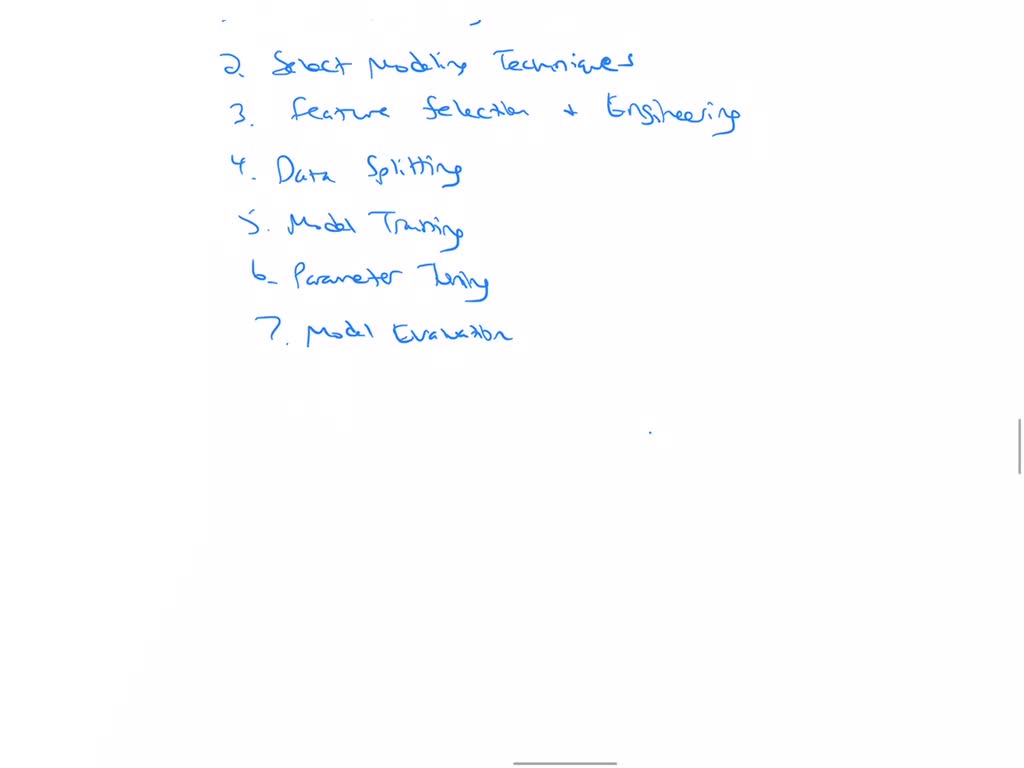 2. Select Modeling Techniques
3. Feature Selection + Engineering
4. Data Splitting
5. Model Training
6. Parameter Tuning
7. Model Evaluation